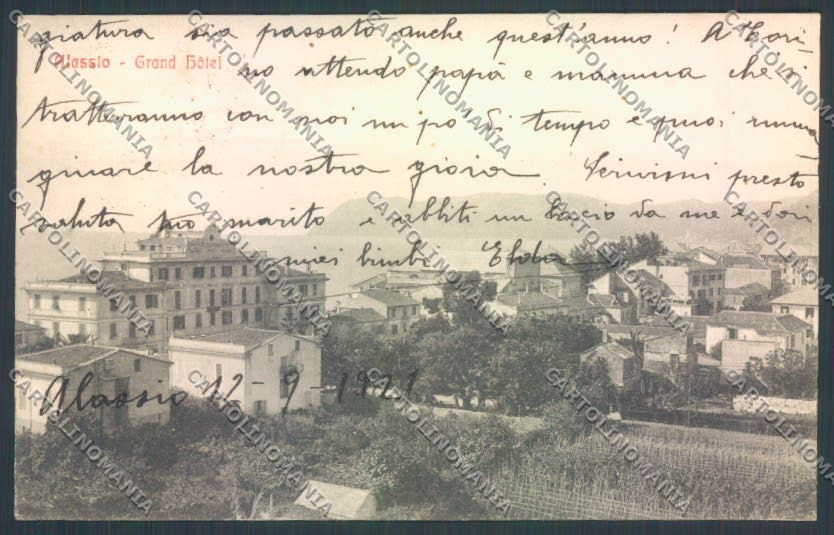 giatura sia passato anche quest'anno! A Tori-
Alassio - Grand Hôtel
no attendo papà e mamma che si
tratteranno con noi un po' di tempo e puoi imma
ginare la nostra gioia. Scrivimi presto
saluta tuo marito e abbiti un bacio da me e dai
miei bimbi Elda
Alassio 12-9-1921
CARTOLINOMANIA